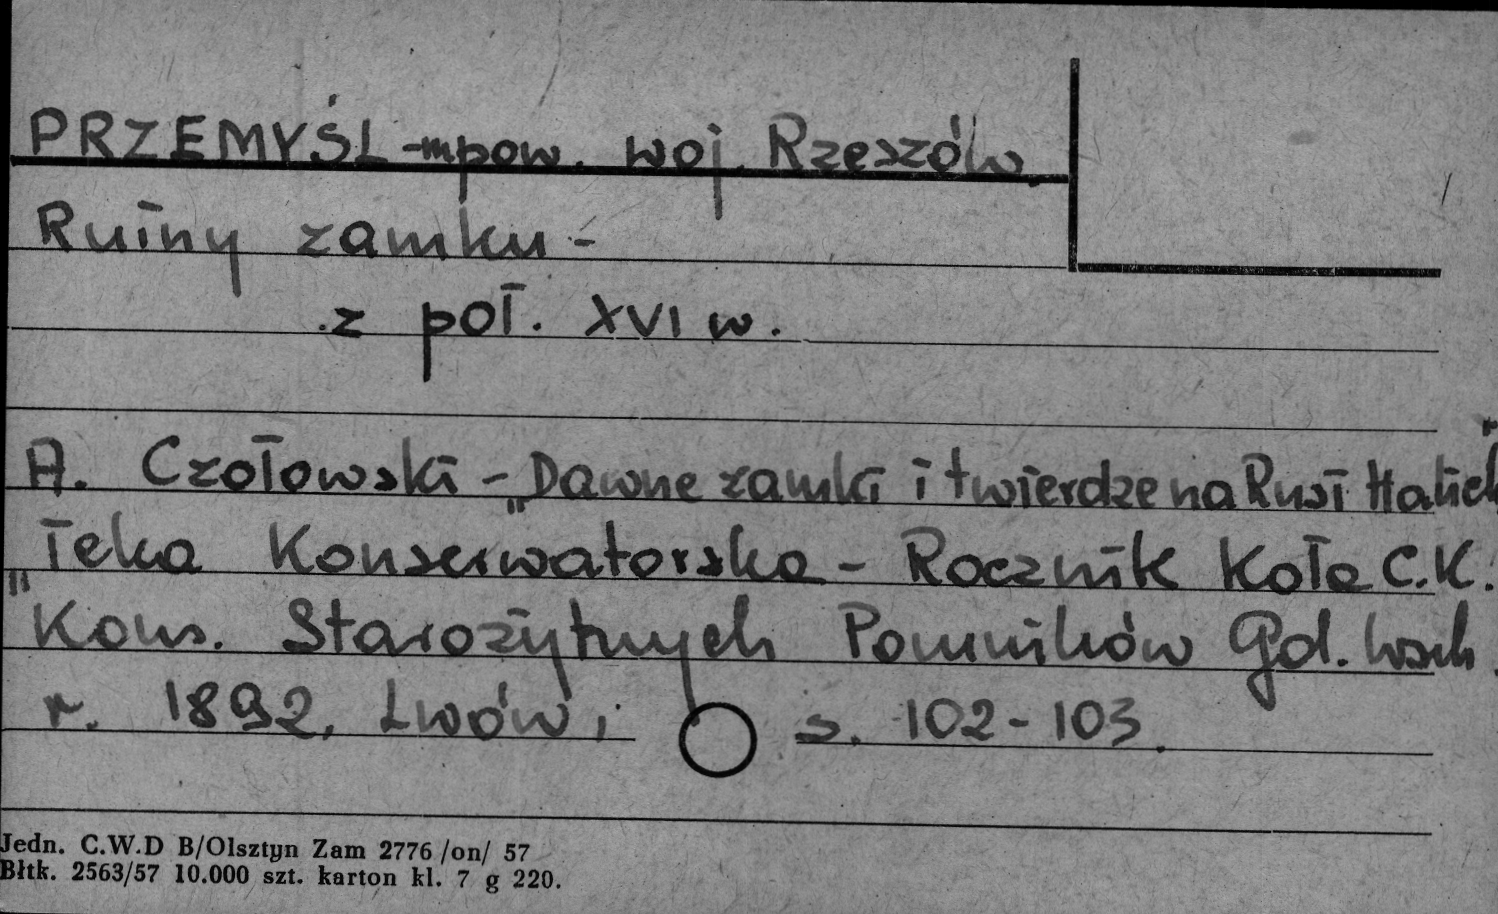 PRZEMYŚL - mpow. woj. Rzeszów.
Ruiny zamku -
z poł. XVI w.
A. Czołowski - „Dawne zamki i twierdze na Rusi Halick"
„Teka Konserwatorska - Rocznik Koła C.K.
Kons. Starożytnych Pomników Gal. Wsch.
r. 1892, Lwów, s. 102-103.
Jedn. C.W.D B/Olsztyn Zam 2776 /on/ 57
Błtk. 2563/57 10.000 szt. karton kl. 7 g 220.